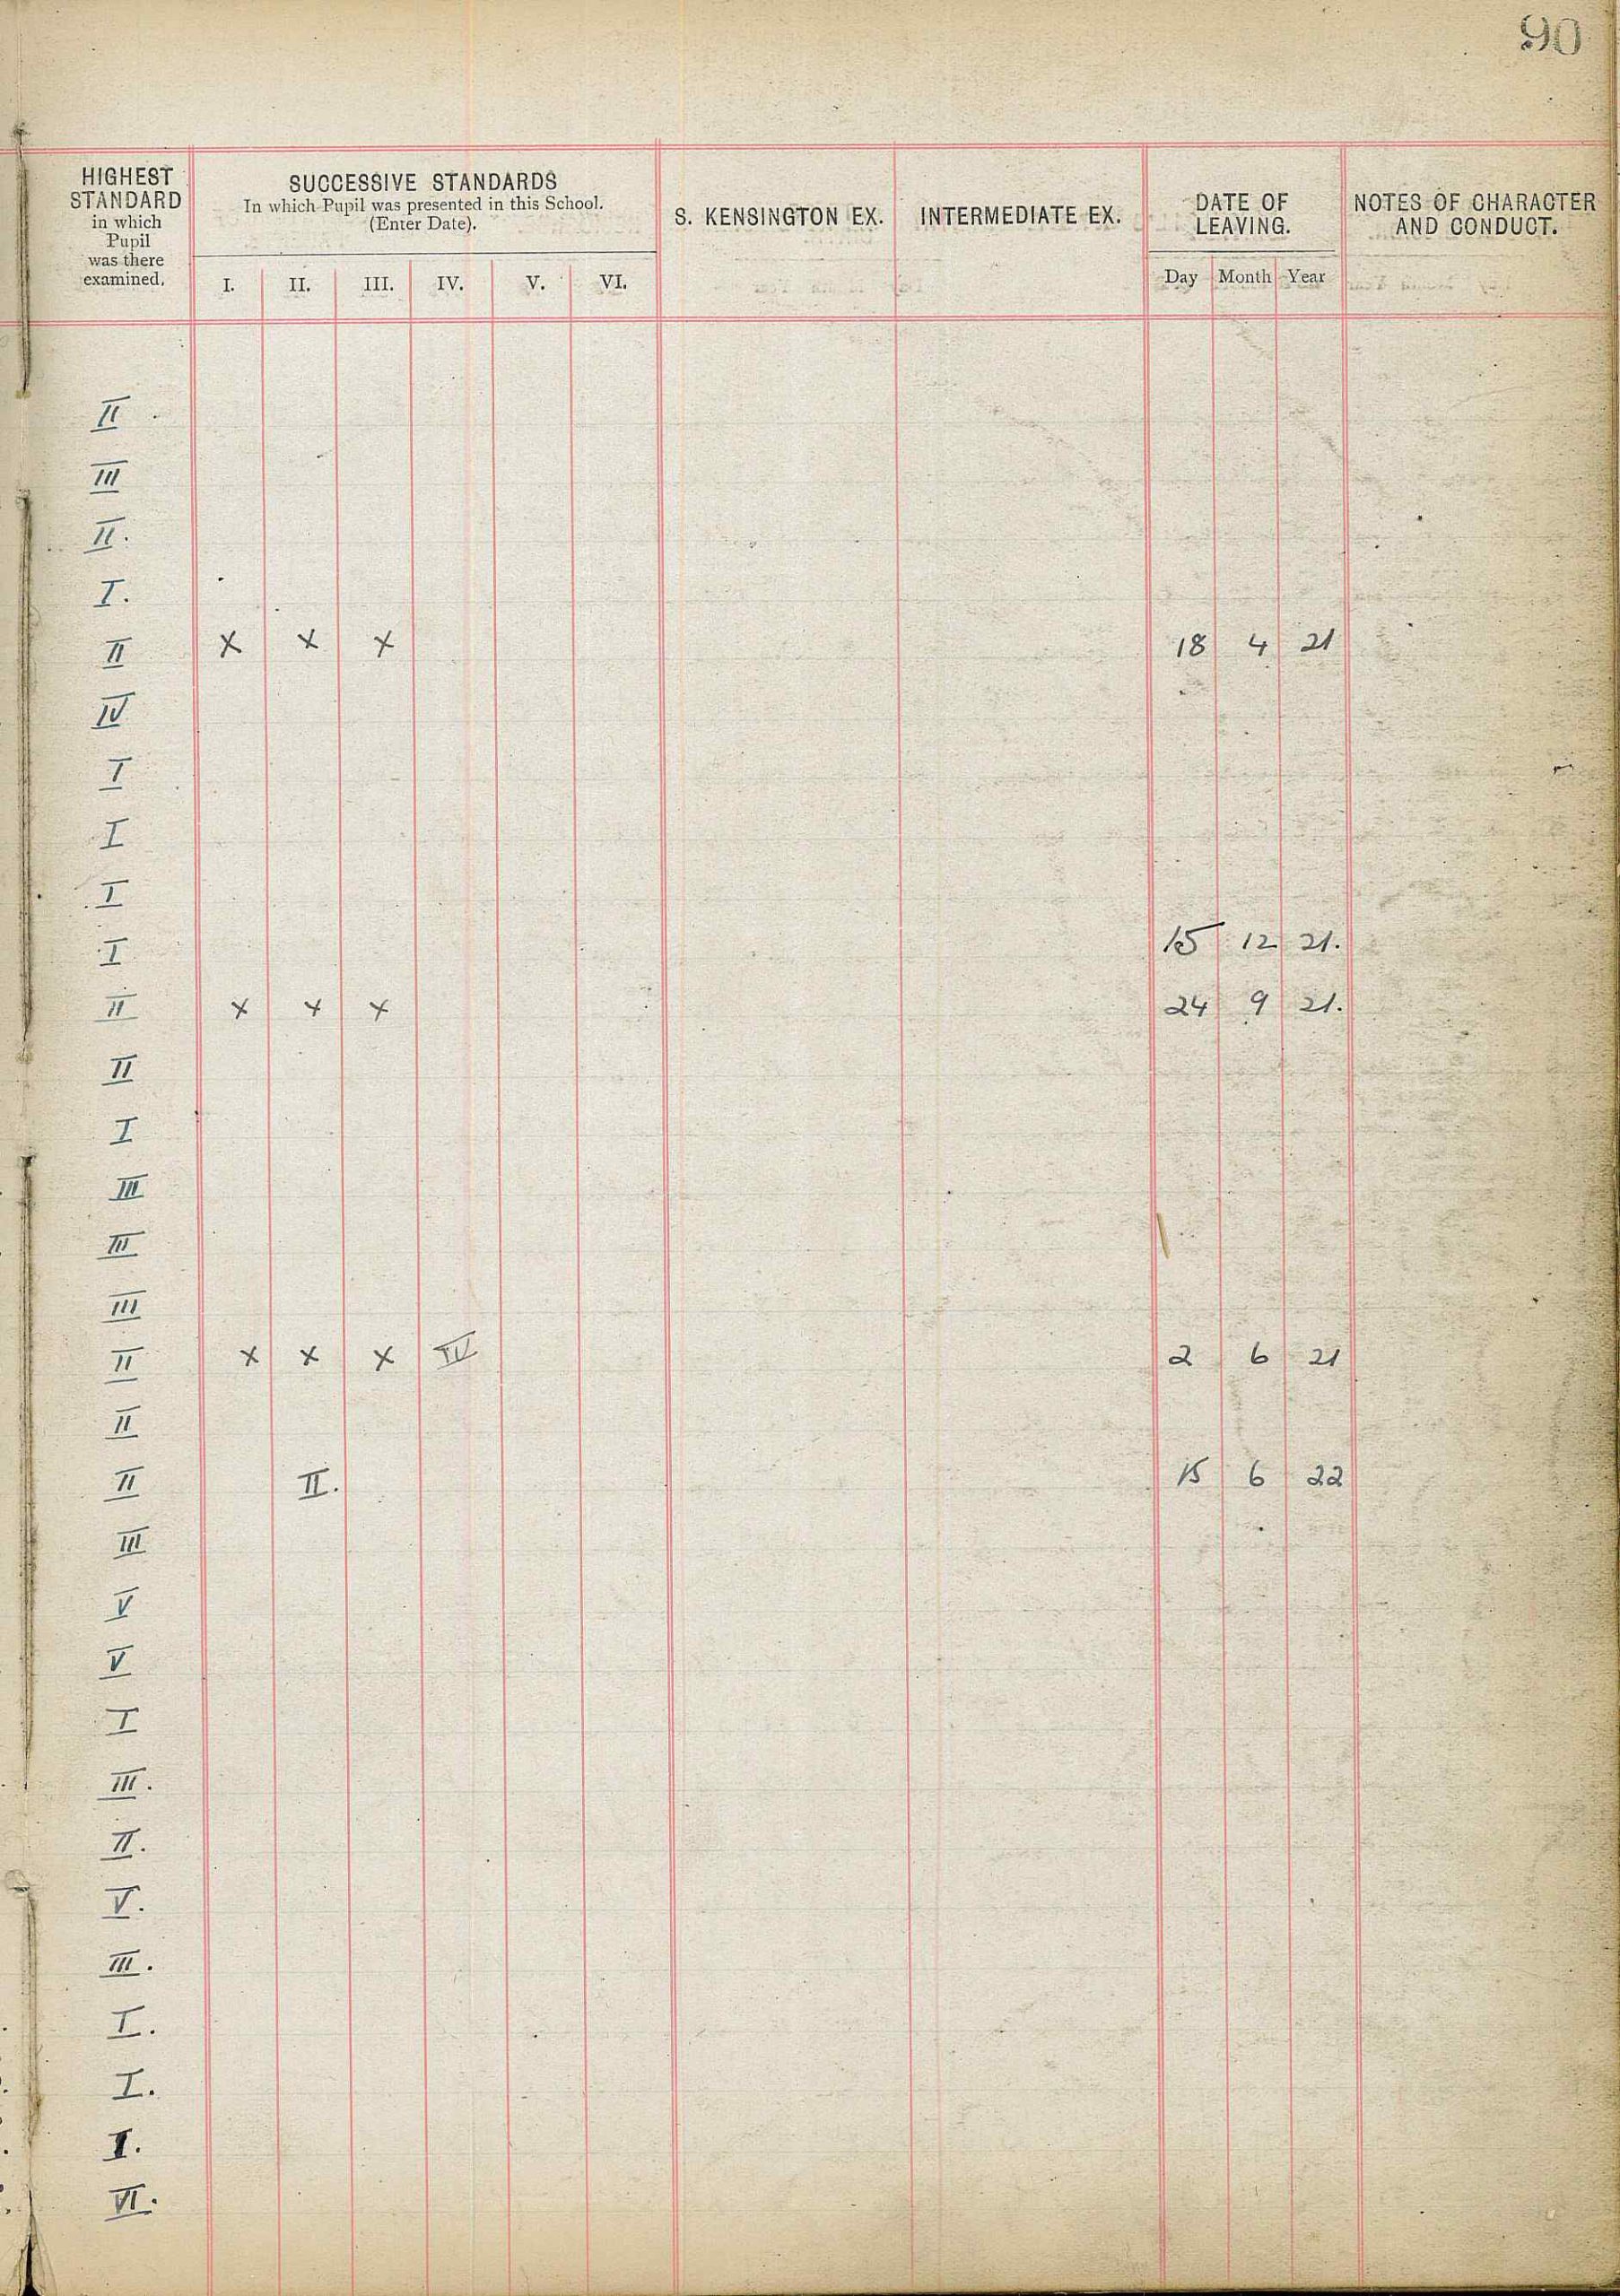 90
HIGHEST STANDARD in which Pupil was there examined.
SUCCESSIVE STANDARDS
In which Pupil was presented in this School.
(Enter Date).
I. II. III. IV. V. VI.
S. KENSINGTON EX.
INTERMEDIATE EX.
DATE OF LEAVING.
Day Month Year
NOTES OF CHARACTER AND CONDUCT.
II
III
II.
I.
II x x x 18 4 21
IV
I
I
I
I 15 12 21.
II x x x 24 9 21.
II
I
III
III
III
II x x x IV 2 6 21
II
II II. 15 6 22
III
V
V
I
III.
II.
V.
III.
I.
I.
I.
VI.